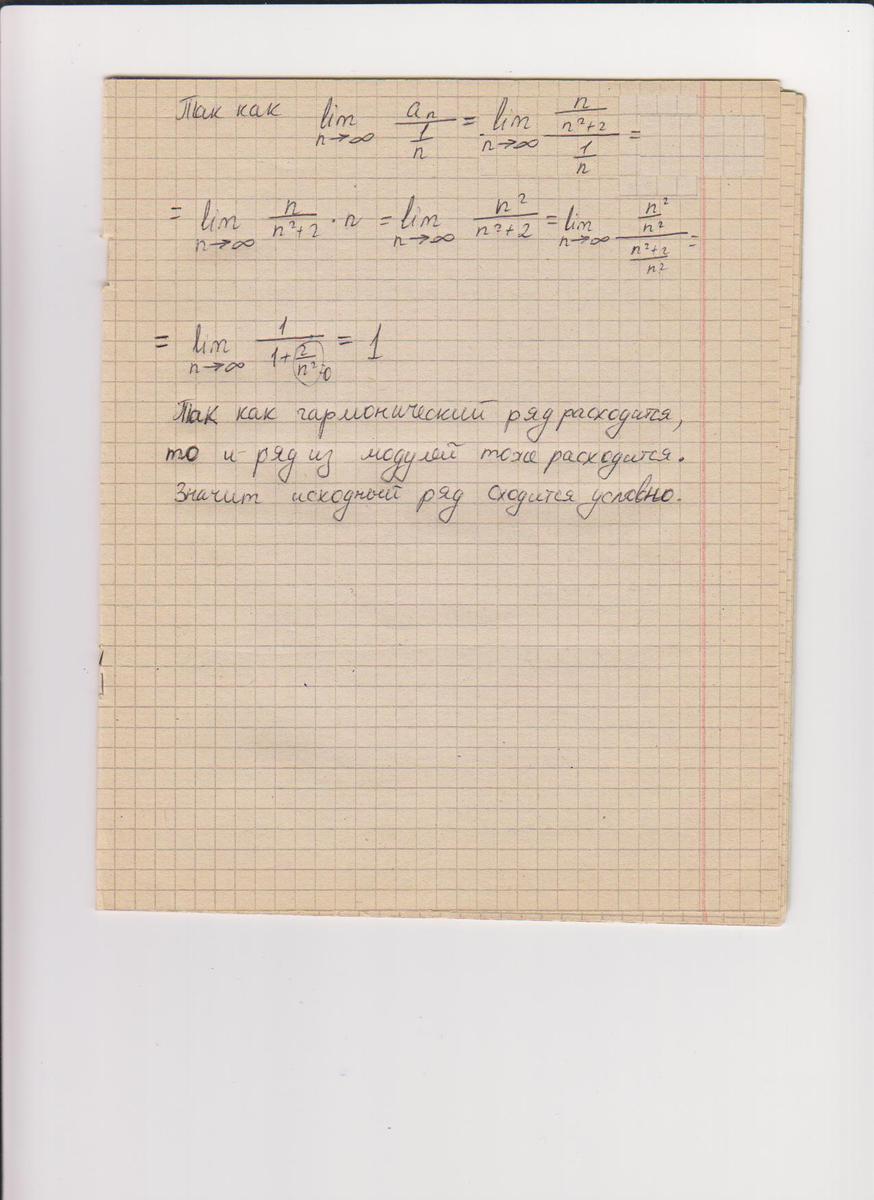 Так как lim n→∞ aₙ / (1/n) = lim n→∞ (n/(n²+2)) / (1/n) =
= lim n→∞ n/(n²+2) · n = lim n→∞ n²/(n²+2) = lim n→∞ (n²/n²) / ((n²+2)/n²) =
= lim n→∞ 1/(1+2/n²→0) = 1
Так как гармонический ряд расходится,
то и ряд из модулей тоже расходится.
Значит исходный ряд сходится условно.